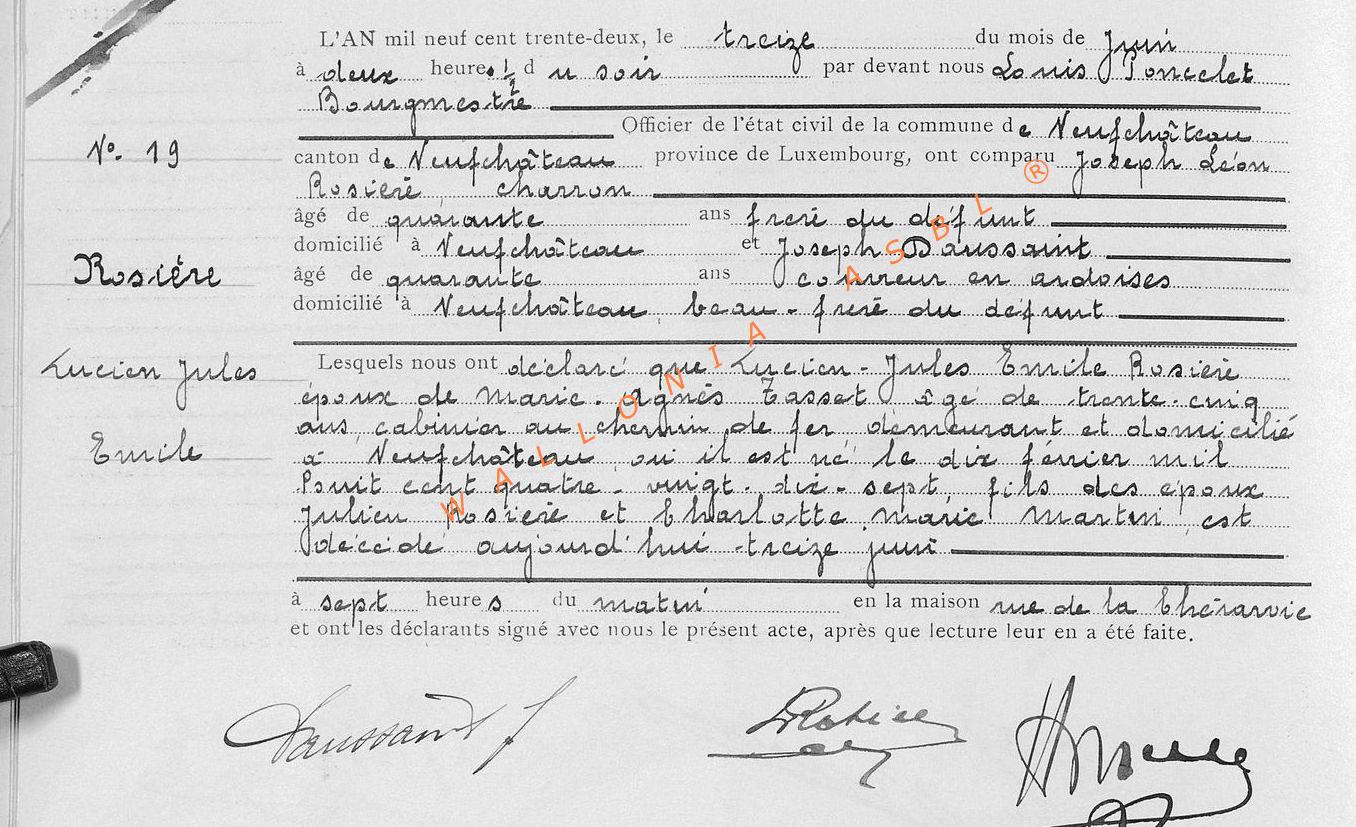 L'AN mil neuf cent trente-deux, le treize du mois de Juin
à deux heures ½ du soir par devant nous Louis Poncelet
Bourgmestre
Officier de l'état civil de la commune de Neufchâteau
N°. 19
canton de Neufchâteau province de Luxembourg, ont comparu Joseph Léon
Rosière, charron
âgé de quarante ans frère du défunt
domicilié à Neufchâteau et Joseph Daussaint
Rosière
âgé de quarante ans couvreur en ardoises
domicilié à Neufchâteau, beau-frère du défunt
Lucien Jules
Emile
Lesquels nous ont déclaré que Lucien-Jules Emile Rosière
époux de Marie-Agnès Tasset âgé de trente-cinq
ans, cabinier au chemin de fer, demeurant et domicilié
à Neufchâteau, où il est né le dix février mil
huit cent quatre-vingt-dix-sept, fils des époux
Julien Rosière et Charlotte Marie Martin, est
décédé aujourd'hui treize juin
à sept heures du matin en la maison rue de la
et ont les déclarants signé avec nous le présent acte, après que lecture leur en a été faite.
WALLONIA ASBL ®
Daussaint J